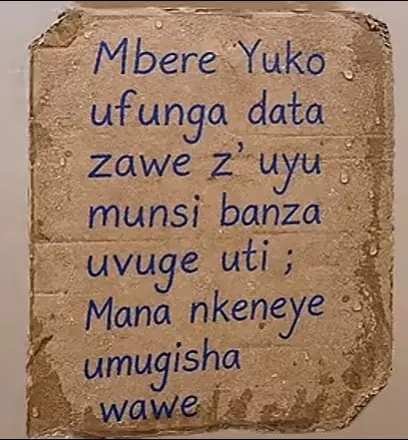 Mbere Yuko
ufunga data
zawe z’ uyu
munsi banza
uvuge uti ;
Mana nkeneye
umugisha
wawe